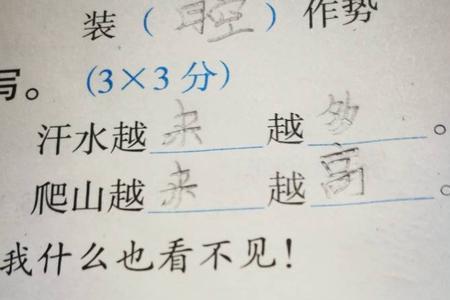 装（腔）作势
写。（3×3分）
汗水越来越多。
爬山越来越高。
我什么也看不见！